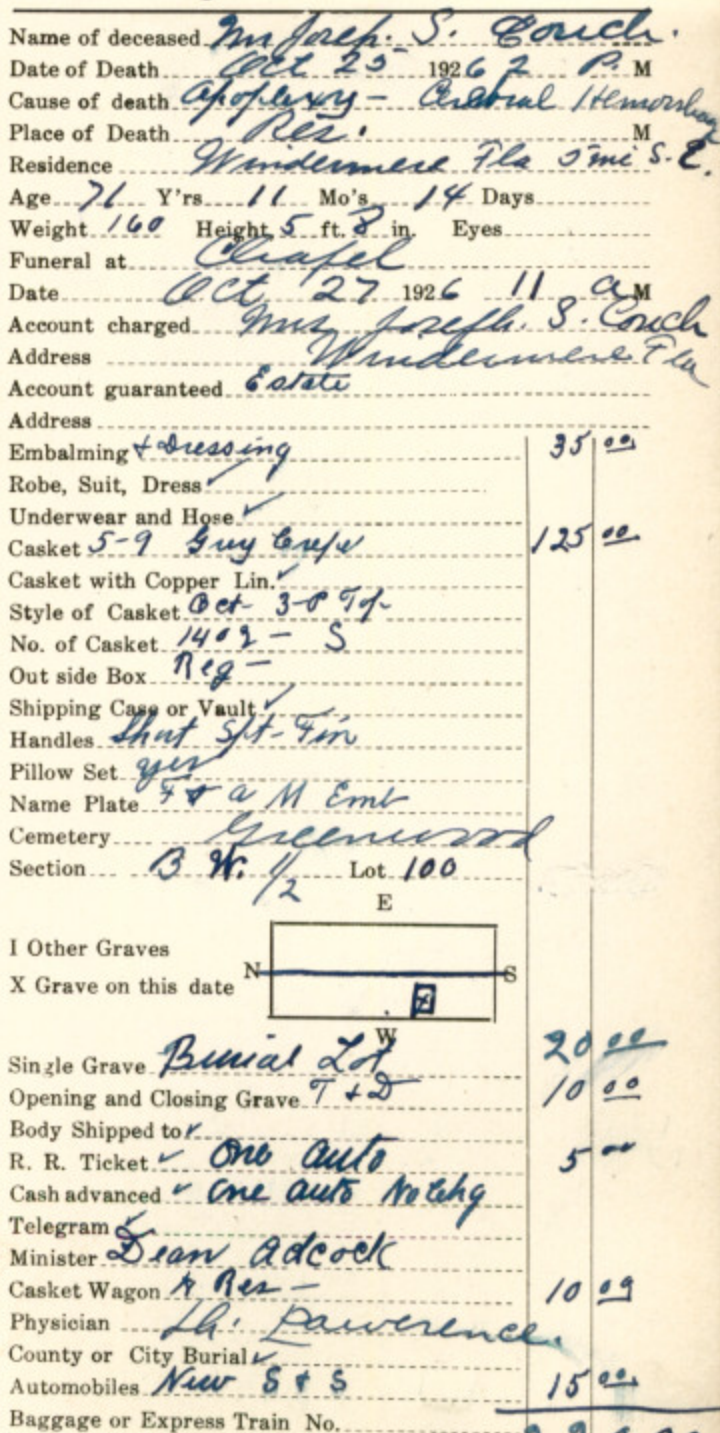 Name of deceased Mr Joseph. S. Couch.
Date of Death Oct 25 1926 2 P. M
Cause of death Apoplexy - Cerebral Hemorrhage
Place of Death Res. M
Residence Windermere Fla 5 mi S. E.
Age 71 Y'rs 11 Mo's 14 Days
Weight 160 Height 5 ft. 8 in. Eyes
Funeral at Chapel
Date Oct 27 1926 11 a M
Account charged Mrs Joseph. S. Couch
Address Windermere Fla
Account guaranteed Estate
Address
Embalming & Dressing 35 00
Robe, Suit, Dress ✓
Underwear and Hose ✓
Casket 5-9 Grey Crepe 125 00
Casket with Copper Lin. ✓
Style of Casket Oct- 3-P Top-
No. of Casket 1409 - S
Out side Box Reg -
Shipping Case or Vault ✓
Handles Short
Pillow Set yes
Name Plate F & A M Emb
Cemetery Greenwood
Section B W. 1/2 Lot 100
E
I Other Graves
N S
X Grave on this date X
W
Single Grave Burial Lot 20 00
Opening and Closing Grave T & D 10 00
Body Shipped to ✓
R. R. Ticket ✓ One auto 5 00
Cash advanced ✓ One auto No Chg
Telegram ✓
Minister Dean Adcock
Casket Wagon Res - 10 00
Physician Dr. Lawerence.
County or City Burial ✓
Automobiles New S & S 15 00
Baggage or Express Train No.